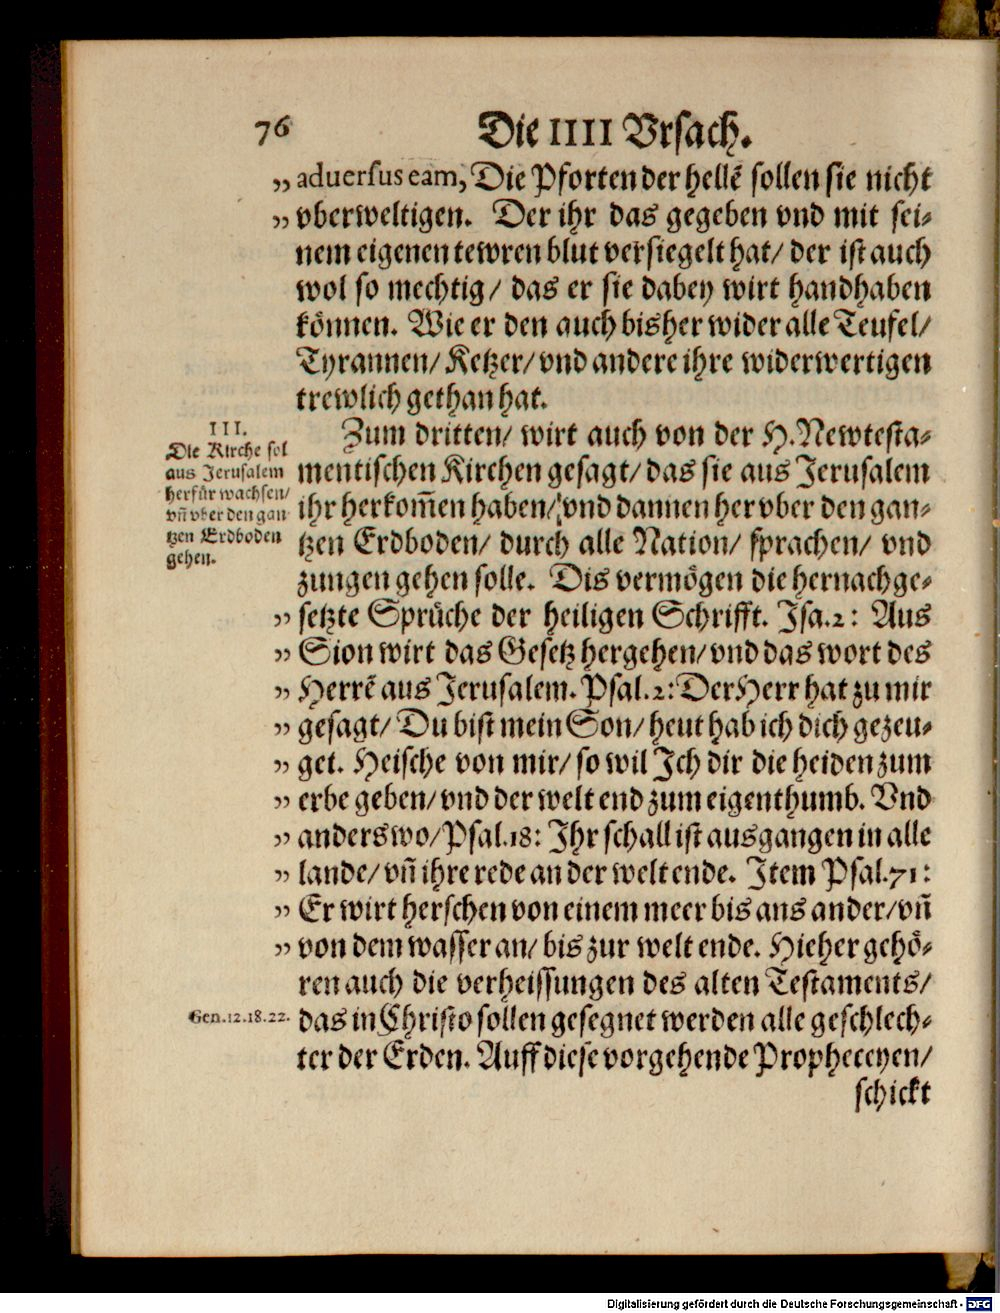 76 Die IIII Vrsach.
„ adversus eam, Die Pforten der hellẽ sollen sie nicht
„ vberweltigen. Der ihr das gegeben vnd mit sei-
nem eigenen tewren blut versiegelt hat/ der ist auch
wol so mechtig/ das er sie dabey wirt handhaben
können. Wie er den auch bisher wider alle Teufel/
Tyrannen/ Ketzer/ vnd andere ihre widerwertigen
trewlich gethan hat.
III.
Die Kirche sol
aus Jerusalem
herfür wachsen/
vñ vber den gan
tzen Erdboden
gehen.
Zum dritten/ wirt auch von der H. Newtesta-
mentischen Kirchen gesagt/ das sie aus Jerusalem
ihr herkom̃en haben/ vnd dannen her vber den gan-
tzen Erdboden/ durch alle Nation/ sprachen/ vnd
zungen gehen solle. Dis vermögen die hernachge-
„ setzte Sprüche der heiligen Schrifft. Jsa. 2: Aus
„ Sion wirt das Gesetz hergehen/ vnd das wort des
„ Herrẽ aus Jerusalem. Psal. 2: Der Herr hat zu mir
„ gesagt/ Du bist mein Son/ heut hab ich dich gezeu-
„ get. Heische von mir/ so wil Jch dir die heiden zum
„ erbe geben/ vnd der welt end zum eigenthumb. Vnd
„ anderswo/ Psal. 18: Jhr schall ist ausgangen in alle
„ lande/ vñ ihre rede an der welt ende. Jtem Psal. 71:
„ Er wirt herschen von einem meer bis ans ander/ vñ
„ von dem wasser an/ bis zur welt ende. Hieher gehö-
ren auch die verheissungen des alten Testaments/
Gen. 12. 18. 22. das in Christo sollen gesegnet werden alle geschlech-
ter der Erden. Auff diese vorgehende Propheceyen/
schickt
Digitalisierung gefördert durch die Deutsche Forschungsgemeinschaft - DFG